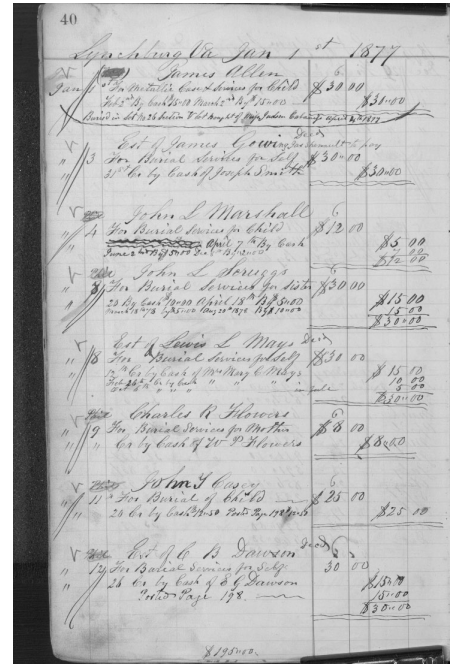 40
Lynchburg Va Jan 1st 1877
James Allen
Jan 1st For Metallic Case & Services for Child $30 00
Feb 2nd By Cash 15"00 March 2nd By $15"00 $30"00
Buried in Lot No 26 Section V Lot bought of Major April 4th 1877
Est of James Gowing Dec'd
" 3 For Burial Services for Self $30"00
" 31st Cr by Cash of Joseph Smith $30"00
John L Marshall
" 4 For Burial Services for Child $12 00
April 7th By Cash $5 00
June 2nd By $5"00 7 00
$12 00
John L Scruggs
" 8 For Burial Services for Sister $30 00
" 20 By Cash 10"00 April 18th By 5"00 $15 00
March 18th 78 by $5"00 Aug 20th 1878 By $10"00 15 00
$30"00
Est of Lewis L Mays Dec'd
" 8 For Burial Services for Self $30 00
" Cr by Cash of Mrs Mary C Mays $15 00
Feb 26th Cr by Cash " " " 10 00
in full 5 00
$30"00
Charles R Flowers
" 9 For Burial Services for Mother $8 00
" Cr by Cash of W P Flowers $8"00
John T Casey
" 11 For Burial of Child $25 00
" 24 Cr by Cash 12"50 Posted Page 198 $25 00
Est of C B Dawson Dec'd
" 12 For Burial Services for Self 30 00
" 26 Cr by Cash of E G Dawson $15"00
Posted Page 198. 15"00
$30"00
$195"00